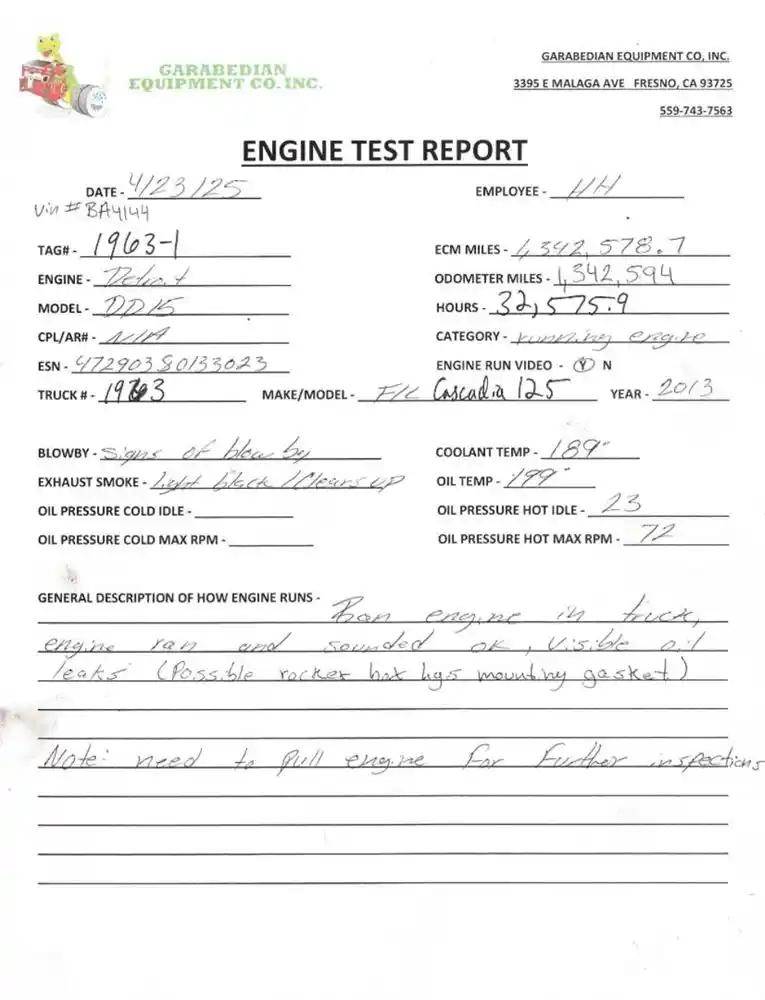 GARABEDIAN
EQUIPMENT CO. INC.
GARABEDIAN EQUIPMENT CO, INC.
3395 E MALAGA AVE FRESNO, CA 93725
559-743-7563
ENGINE TEST REPORT
DATE - 4/23/25 EMPLOYEE - HH
Vin # BA4144
TAG# - 1963-1 ECM MILES - 1,342,578.7
ENGINE - Detroit ODOMETER MILES - 1,342,594
MODEL - DD15 HOURS - 32,575.9
CPL/AR# - N/A CATEGORY - running engine
ESN - 472903S0133023 ENGINE RUN VIDEO - Y N
TRUCK # - 1963 MAKE/MODEL - F/L Cascadia 125 YEAR - 2013
BLOWBY - Signs of blow by COOLANT TEMP - 189°
EXHAUST SMOKE - Light black / Clears up OIL TEMP - 199°
OIL PRESSURE COLD IDLE - OIL PRESSURE HOT IDLE - 23
OIL PRESSURE COLD MAX RPM - OIL PRESSURE HOT MAX RPM - 72
GENERAL DESCRIPTION OF HOW ENGINE RUNS - Ran engine in truck,
engine ran and sounded ok, visible oil
leaks (Possible rocker box hgs mounting gasket)
Note: need to pull engine for further inspections